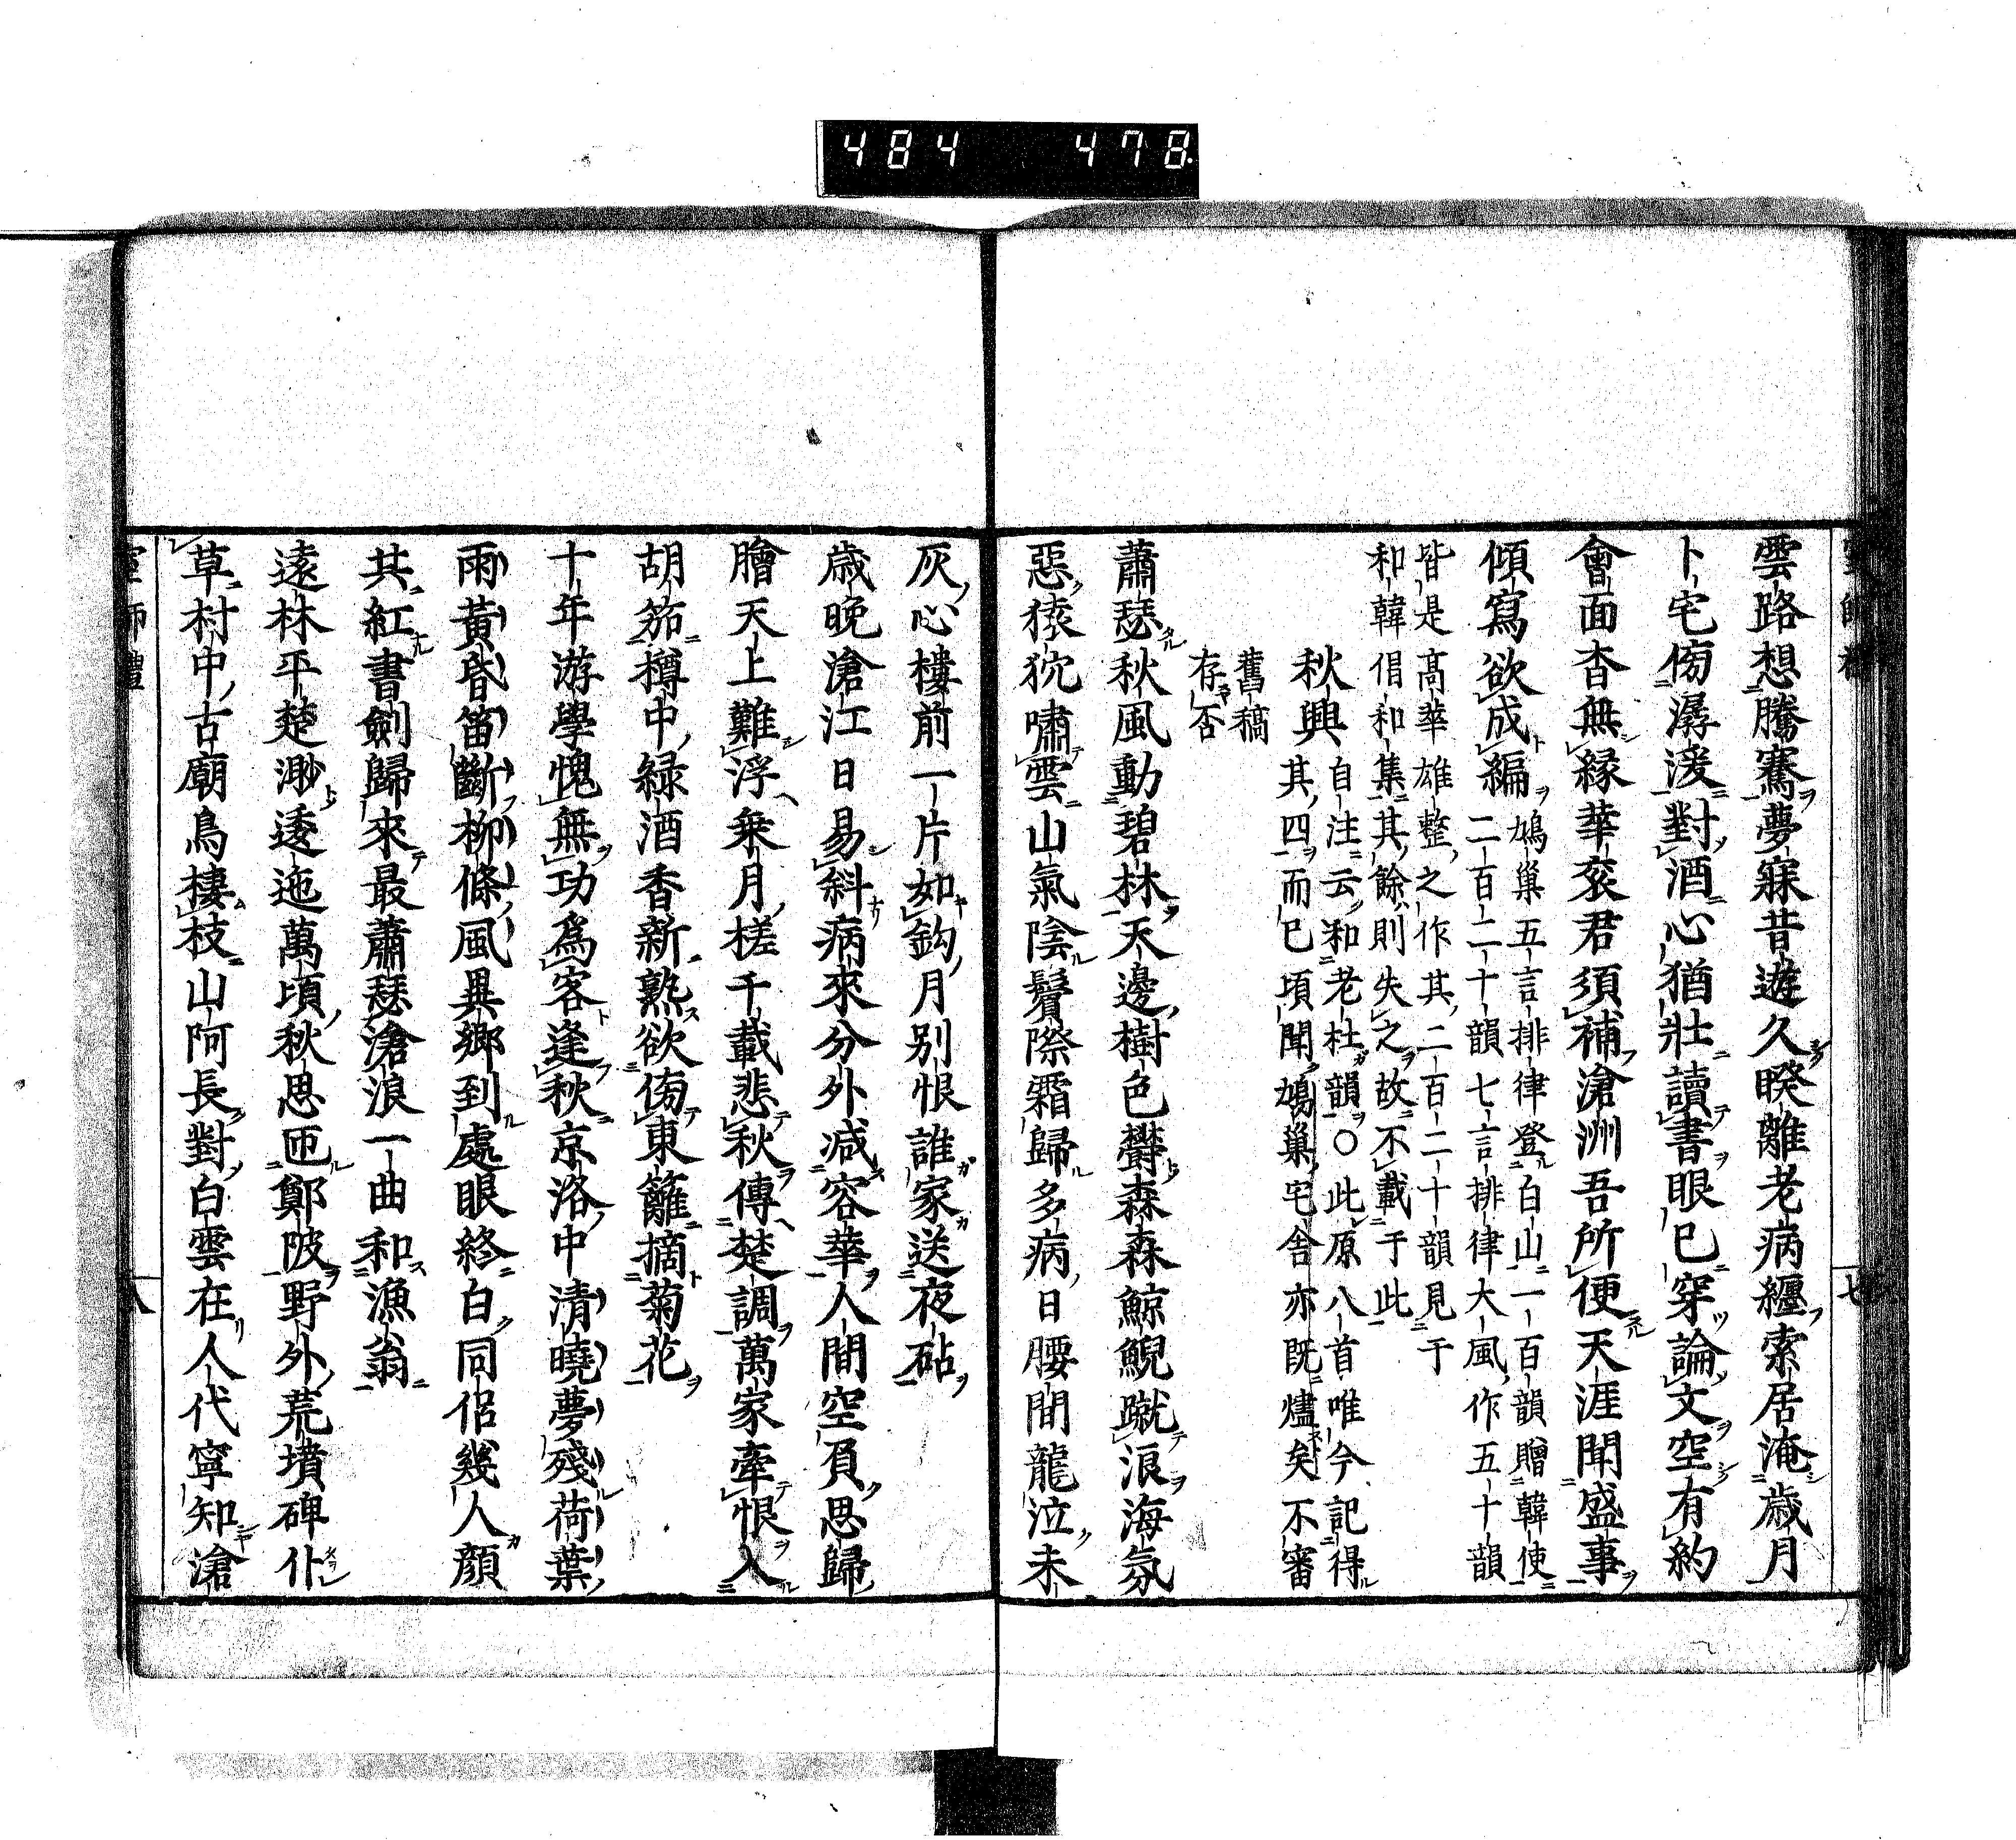 484 478
雲路想騰騫夢寐昔遊久暌離老病纏索居淹歲月
卜宅傍潺湲對酒心猶壯讀書眼已穿論文空有約
會面杳無緣華袞君須補滄洲吾所便天涯聞盛事
傾寫欲成編
鳩巢五言排律登白山一百韻贈韓使
二百二十韻七言排律大風作五十韻
皆是高華雄整之作其二百二十韻見于
和韓倡和集其餘則失之故不載于此
秋興
自注云和老杜韻〇此原八首唯今記得
其四而已頃聞鳩巢宅舍亦既燼矣不審
舊稿
存否
蕭瑟秋風動碧林天邊樹色鬱森森鯨鯢蹴浪海氛
惡猿狖嘯雲山氣陰鬢際霜歸多病日腰間龍泣未
灰心樓前一片如鈎月別恨誰家送夜砧
歲晚滄江日易斜病來分外減容華人間空負思歸
膾天上難浮乗月槎千載悲秋傳楚調萬家牽恨入
胡笳樽中緑酒香新熟欲傍東籬摘菊花
十年游學愧無功爲客逢秋京洛中清曉夢殘荷葉
雨黃昏笛斷柳條風異鄉到處眼終白同侶幾人顏
共紅書劍歸來最蕭瑟滄浪一曲和漁翁
遠林平楚渺逶迤萬頃秋思匝鄭陂野外荒墳碑仆
草村中古廟鳥棲枝山阿長對白雲在人代寧知滄
七
八